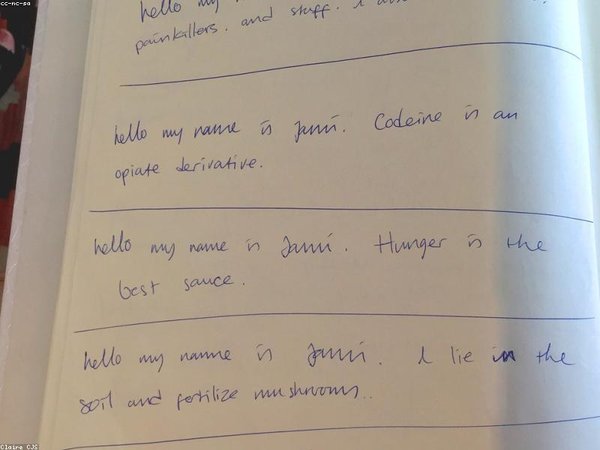 cc-nc-sa
hello my
painkillers. and stuff. I
hello my name is Jami. Codeine is an
opiate derivative.
hello my name is Jami. Hunger is the
best sauce.
hello my name is Jami. I lie in the
soil and fertilize mushrooms..
Claire CJS